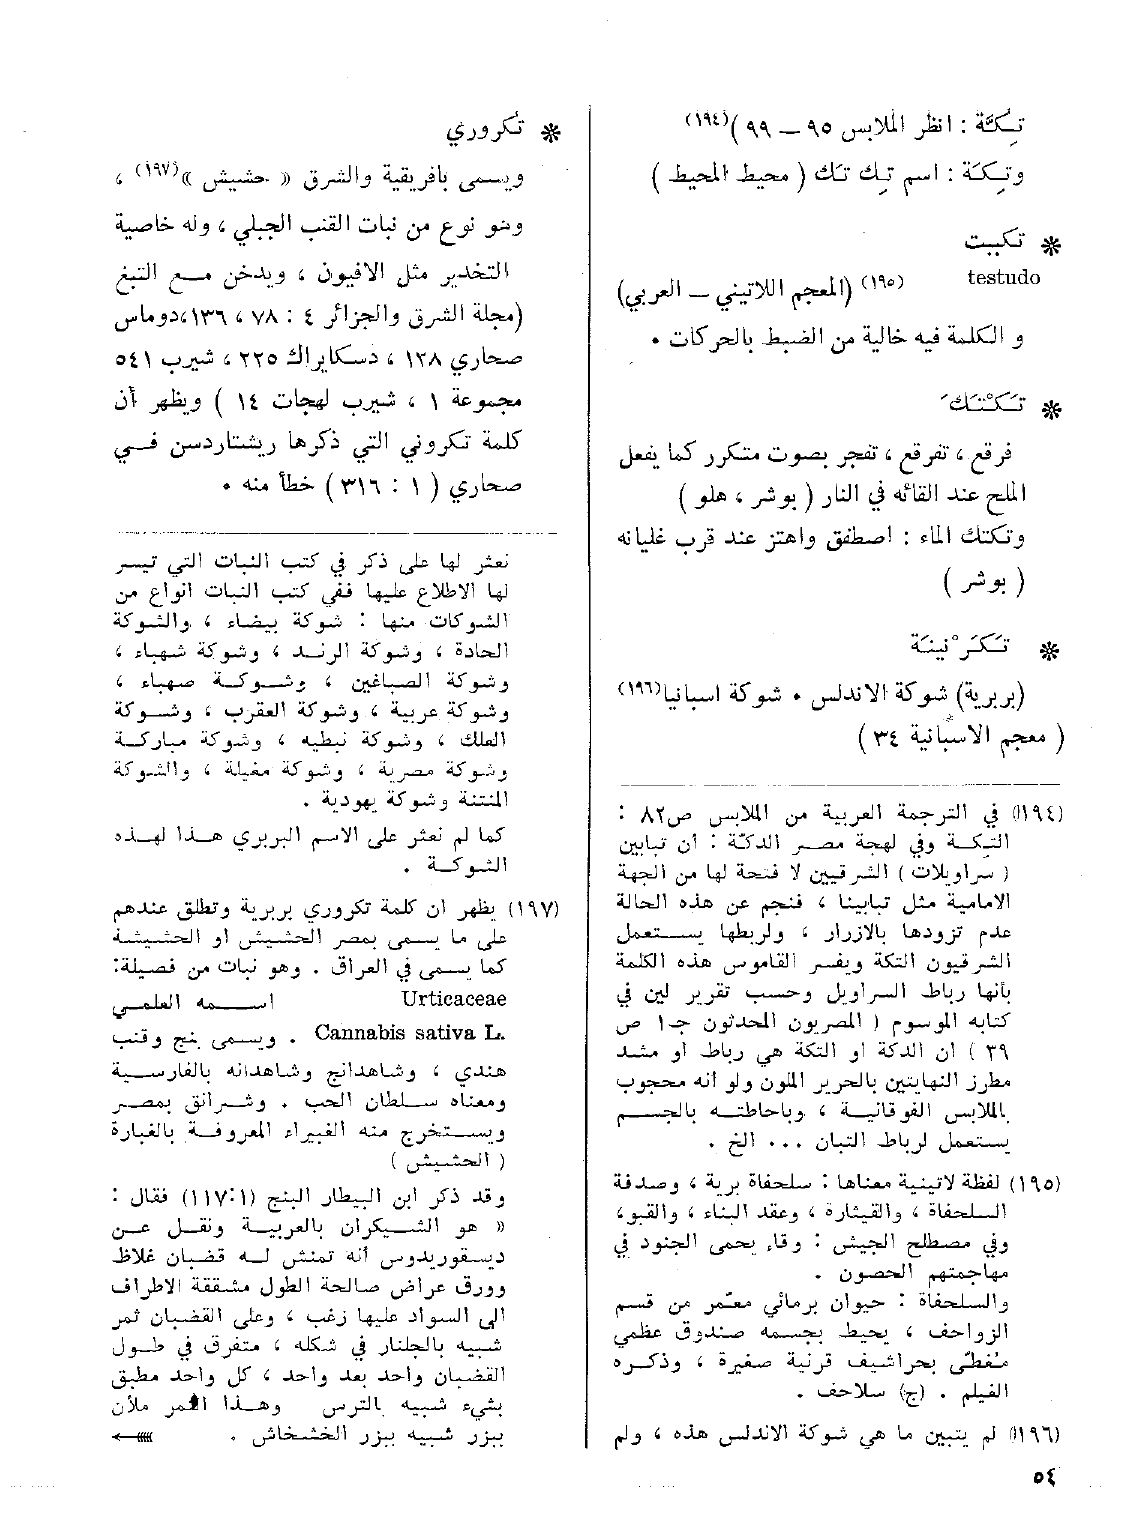 تِكَّة : انظر الملابس ٩٥ — ٩٩ )(١٩٤)
وتِكِّة : اسم تِك تَك ( محيط المحيط )
❋ تكبيت
testudo (١٩٥) (المعجم اللاتيني — العربي)
و الكلمة فيه خالية من الضبط بالحركات ٠
❋ تَكْتَكَ
فرقع ، تفرقع ، تفجر بصوت متكرر كما يفعل
الملح عند القائه في النار ( بوشر ، هلو )
وتكتك الماء : اصطفق واهتز عند قرب غليانه
( بوشر )
❋ تَكَرْنينَة
(بربرية) شوكة الاندلس ٠ شوكة اسبانيا(١٩٦)
( معجم الاسبانية ٣٤ )
(١٩٤) في الترجمة العربية من الملابس ص٨٢ :
التِكِة وفي لهجة مصر الدكّة : أن تبابين
( سراويلات ) الشرقيين لا فتحة لها من الجهة
الامامية مثل تبابينا ، فنجم عن هذه الحالة
عدم تزودها بالازرار ، ولربطها يستعمل
الشرقيون التكة ويفسر القاموس هذه الكلمة
بأنها رباط السراويل وحسب تقرير لين في
كتابه الموسوم ( المصريون المحدثون جـ١ ص
٣٩ ) ان الدكة او التكة هي رباط او مشد
مطرز النهايتين بالحرير الملون ولو أنه محجوب
بالملابس الفوقانية ، وباحاطته بالجسم
يستعمل لرباط التبان ٠٠٠ الخ .
(١٩٥) لفظة لاتينية معناها : سلحفاة برية ، وصدفة
السلحفاة ، والقيثارة ، وعقد البناء ، والقبو،
وفي مصطلح الجيش : وقاء يحمى الجنود في
مهاجمتهم الحصون .
والسلحفاة : حيوان برمائي معمّر من قسم
الزواحف ، يحيط بجسمه صندوق عظمي
مُغطّى بحراشيف قرنية صغيرة ، وذكره
الغيلم . (ج) سلاحف .
(١٩٦) لم يتبين ما هي شوكة الاندلس هذه ، ولم
❋ تكروري
ويسمى بافريقية والشرق « حشيش »(١٩٧) ،
وهو نوع من نبات القنب الجبلي ، وله خاصية
التخدير مثل الافيون ، ويدخن مع التبغ
(مجلة الشرق والجزائر ٤ : ٧٨ ، ١٣٦،دوماس
صحاري ١٢٨ ، دسكايراك ٢٢٥ ، شيرب ٥٤١
مجموعة ١ ، شيرب لهجات ١٤ ) ويظهر أن
كلمة تكروني التي ذكرها ريشتاردسن في
صحاري ( ١ : ٣١٦ ) خطأ منه ٠
نعثر لها على ذكر في كتب النبات التي تيسر
لها الاطلاع عليها ففي كتب النبات انواع من
الشوكات منها : شوكة بيضاء ، والشوكة
الحادة ، وشوكة الرند ، وشوكة شهباء ،
وشوكة الصباغين ، وشوكة صهباء ،
وشوكة عربية ، وشوكة العقرب ، وشوكة
العلك ، وشوكة نبطيه ، وشوكة مباركة
وشوكة مصرية ، وشوكة مغيلة ، والشوكة
المنتنة وشوكة يهودية .
كما لم نعثر على الاسم البربري هذا لهذه
الشوكة .
(١٩٧) يظهر ان كلمة تكروري بربرية وتطلق عندهم
على ما يسمى بمصر الحشيش او الحشيشة
كما يسمى في العراق . وهو نبات من فصيلة:
Urticaceae اسمه العلمي
Cannabis sativa L. . ويسمى بنج وقنب
هندي ، وشاهدانج وشاهدانه بالفارسية
ومعناه سلطان الحب . وشرانق بمصر
ويستخرج منه الغبيراء المعروفة بالغبارة
( الحشيش )
وقد ذكر ابن البيطار البنج (١:١١٧) فقال :
« هو الشيكران بالعربية ونقل عن
ديسقوريدوس أنه تمنش له قضبان غلاظ
وورق عراض صالحة الطول مشققة الاطراف
الى السواد عليها زغب ، وعلى القضبان ثمر
شبيه بالجلنار في شكله ، متفرق في طول
القضبان واحد بعد واحد ، كل واحد مطبق
بشيء شبيه بالترس وهذا الثمر ملآن
ببزر شبيه ببزر الخشخاش .
٥٤